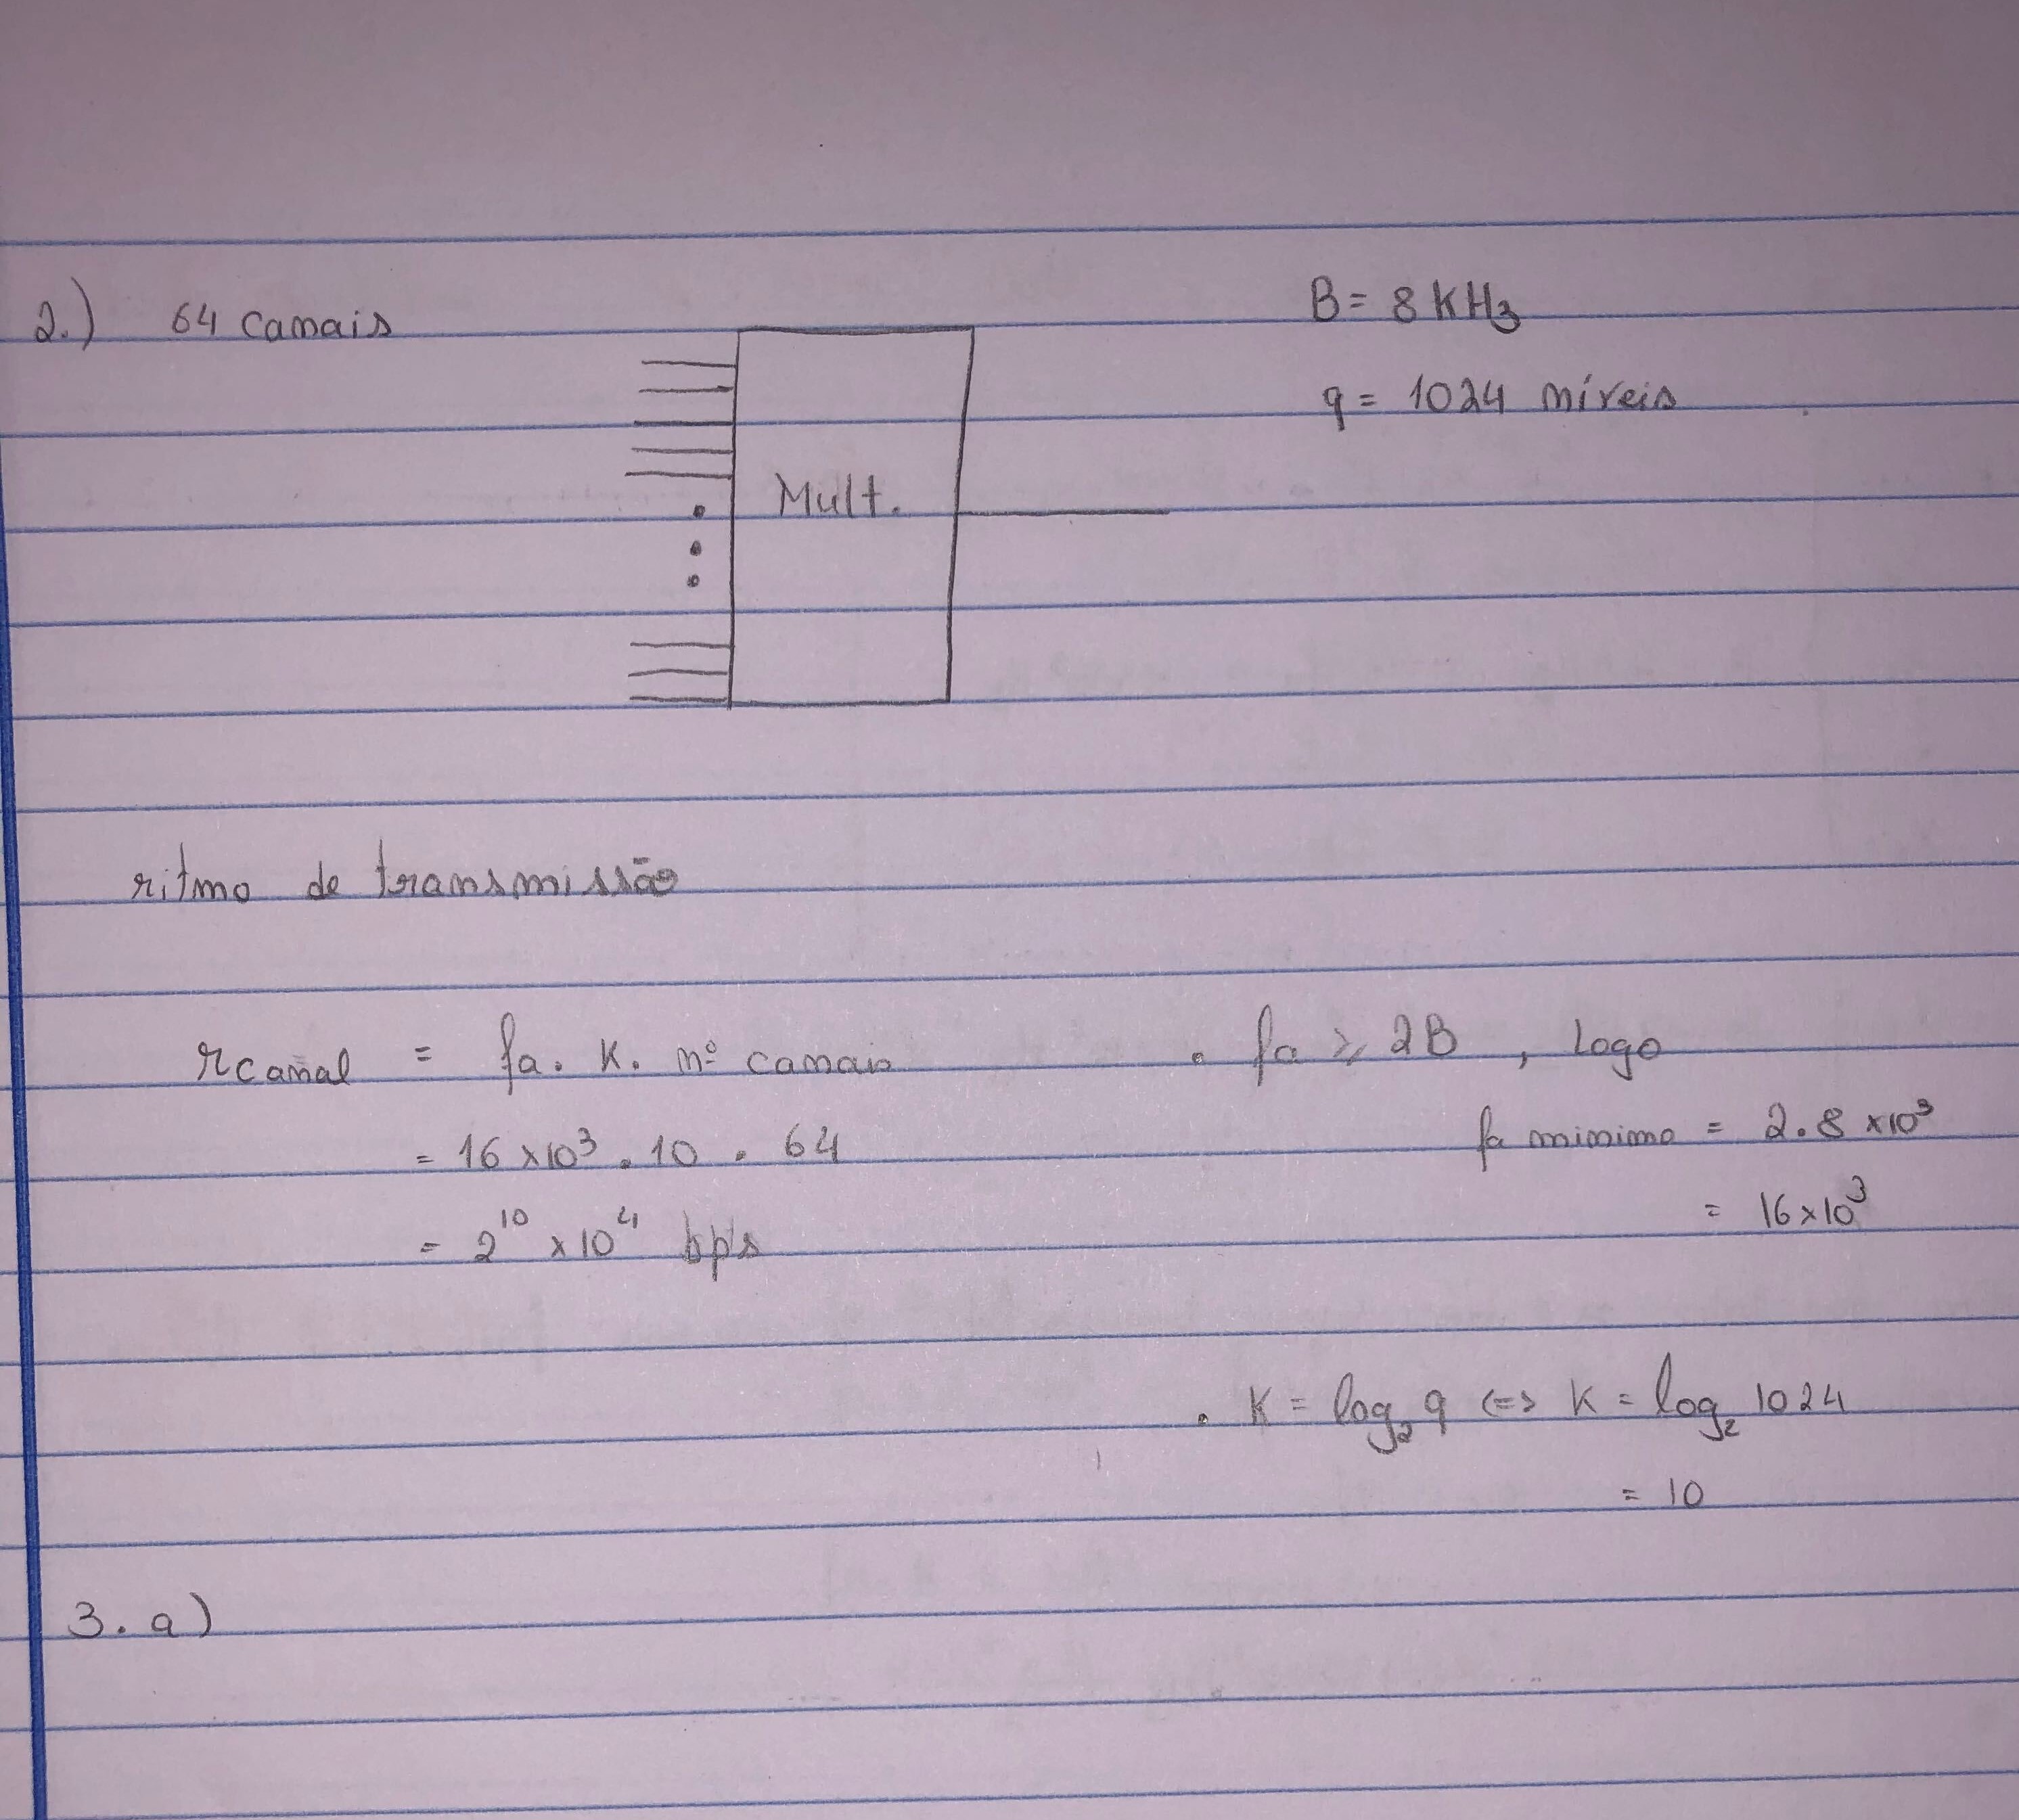 2.) 64 canais
B = 8 KHz
q = 1024 níveis
Mult.
ritmo de transmissão
rcanal = fa. K. nº canais
= 16 x10³ . 10 . 64
= 2¹⁰ x 10⁴ bps
• fa ≥ 2B , logo
fa minimo = 2.8 x10³
= 16x10³
• K = log₂ q <=> K = log₂ 1024
= 10
3. a)